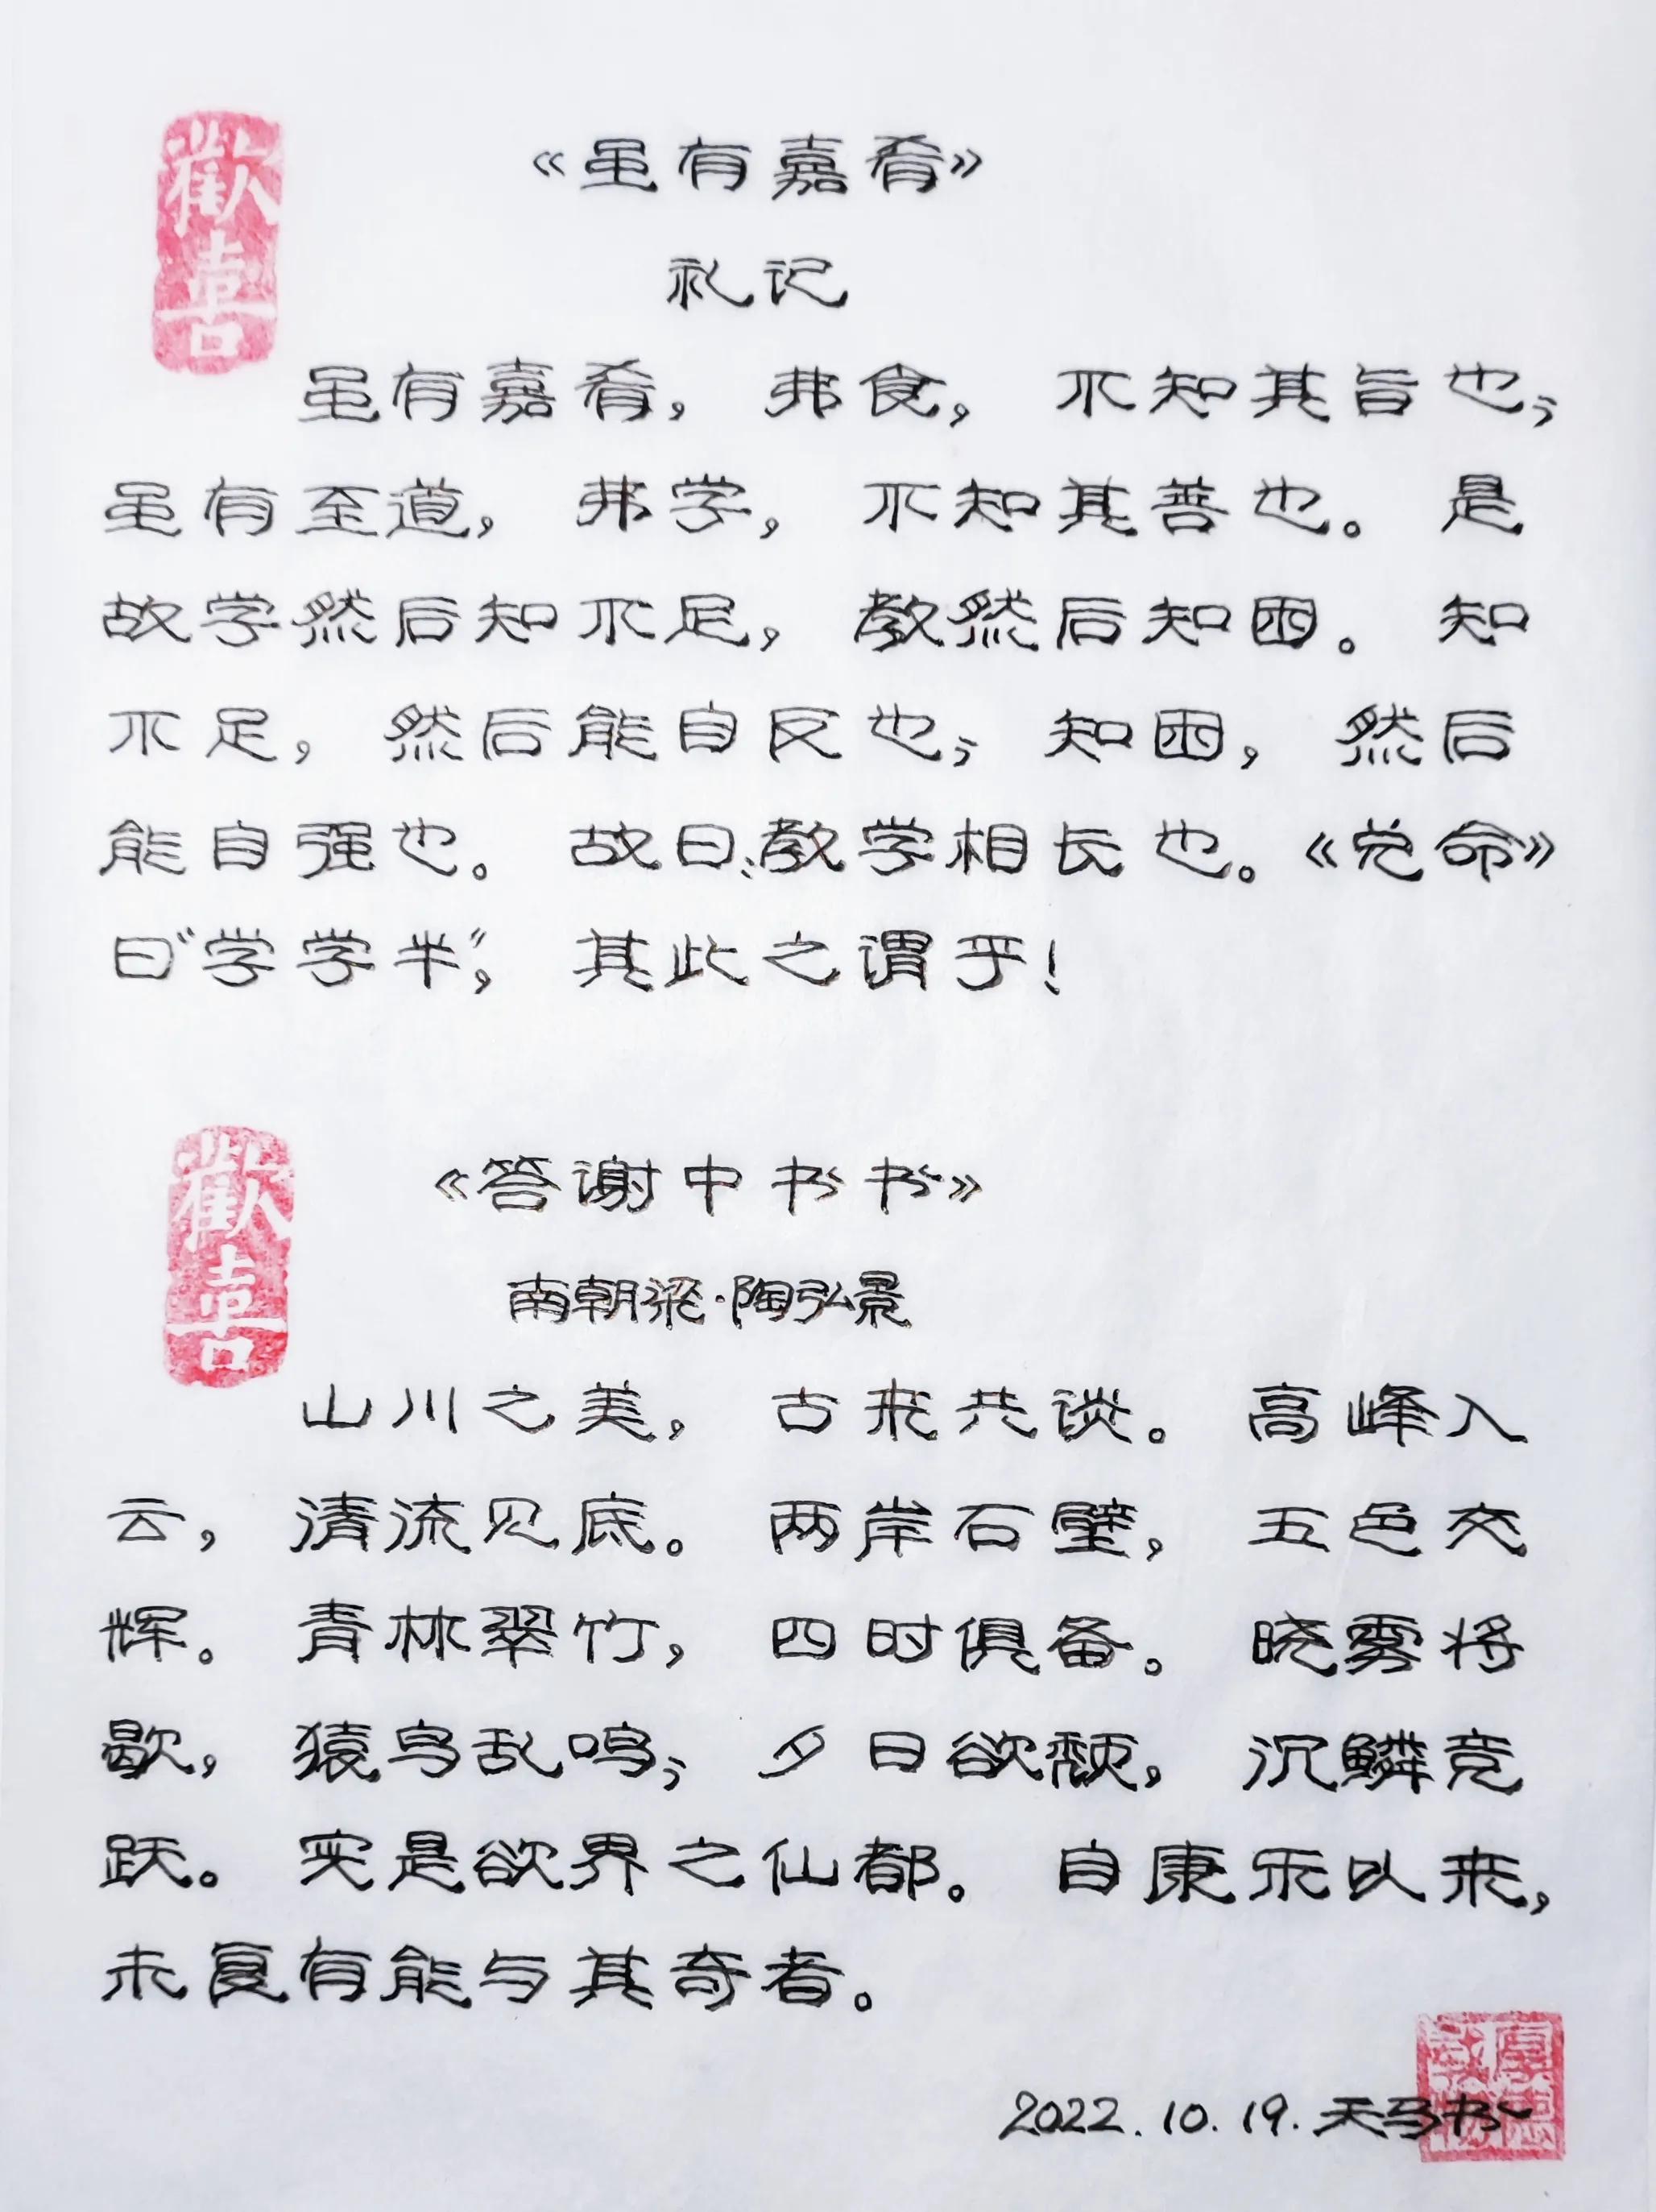 歡喜
《虽有嘉肴》
礼记
虽有嘉肴，弗食，不知其旨也；
虽有至道，弗学，不知其善也。是
故学然后知不足，教然后知困。知
不足，然后能自反也；知困，然后
能自强也。故曰：教学相长也。《兑命》
曰“学学半”，其此之谓乎！
歡喜
《答谢中书书》
南朝梁·陶弘景
山川之美，古来共谈。高峰入
云，清流见底。两岸石壁，五色交
辉。青林翠竹，四时俱备。晓雾将
歇，猿鸟乱鸣；夕日欲颓，沉鳞竞
跃。实是欲界之仙都。自康乐以来，
未复有能与其奇者。
2022.10.19.天马书